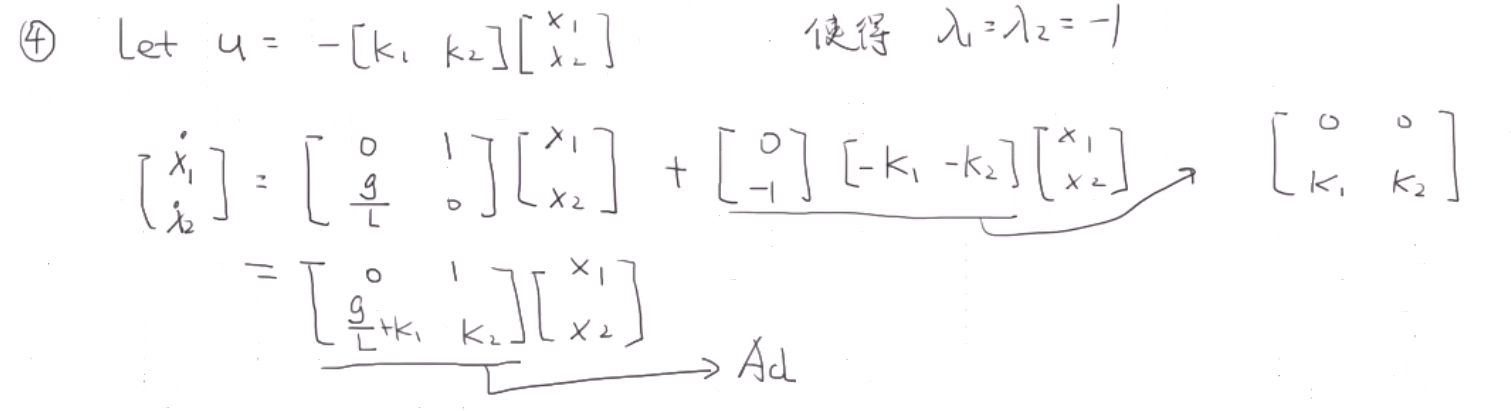 ④ Let u = -[k₁ k₂][x₁ x₂] 使得 λ₁=λ₂=-1
[ẋ₁ ẋ₂] = [0 1; g/L 0][x₁ x₂] + [0 -1][-k₁ -k₂][x₁ x₂] → [0 0; k₁ k₂]
= [0 1; g/L+k₁ k₂][x₁ x₂] → Ad